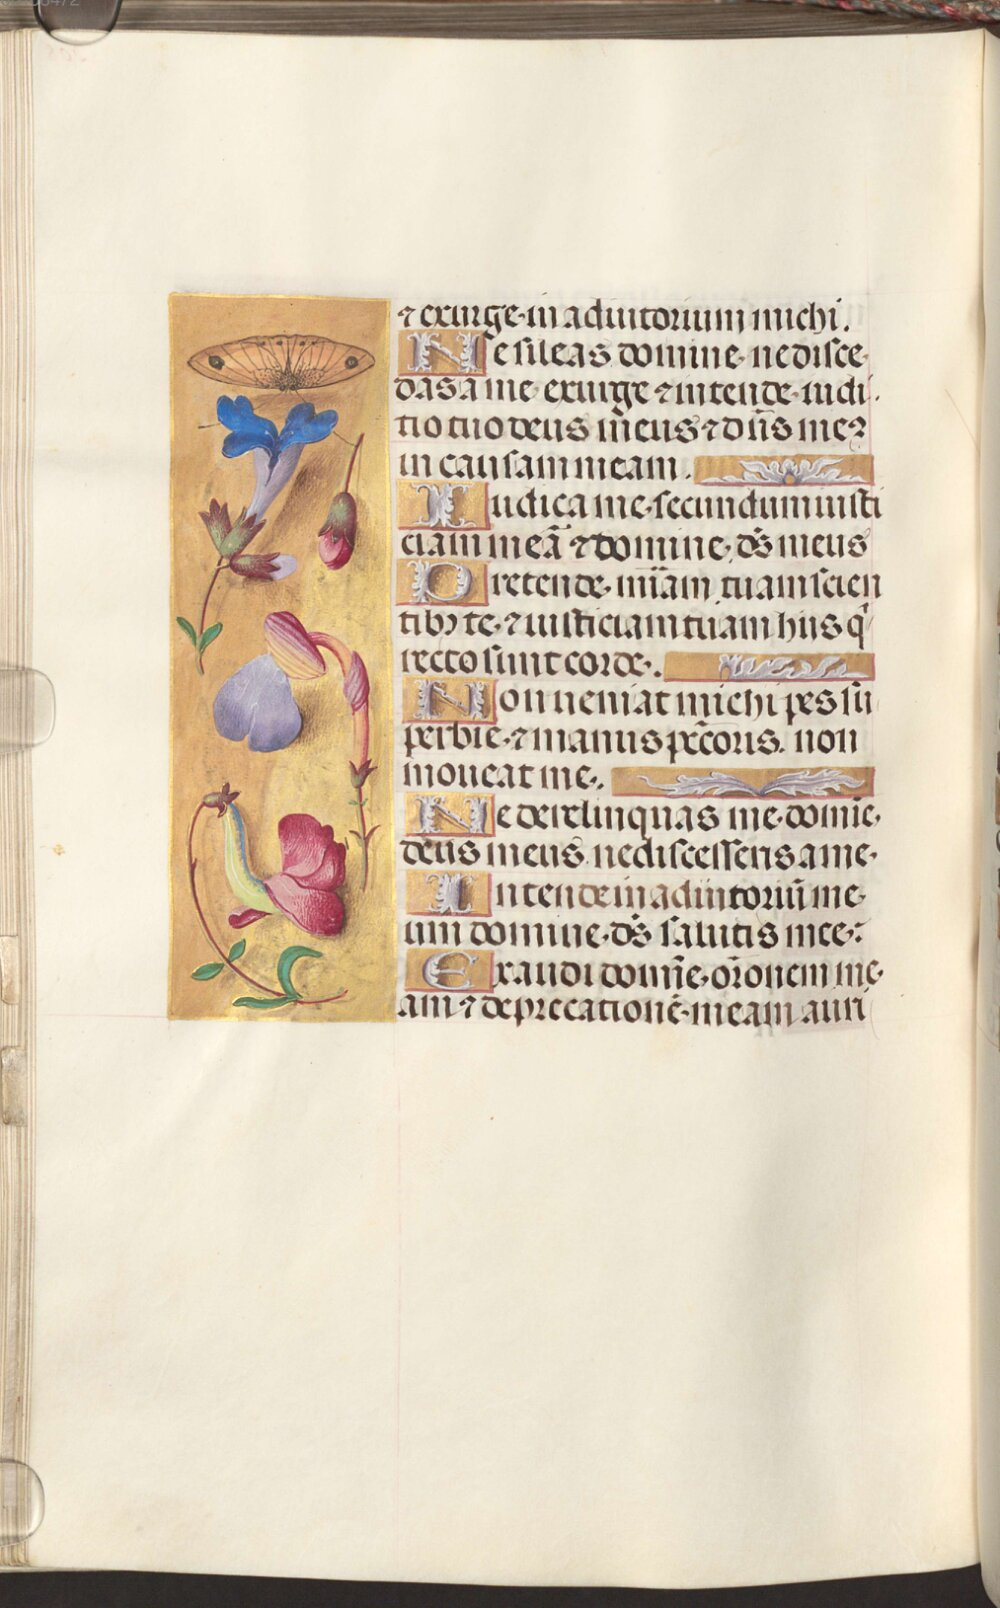 ⁊ exurge in adiutorium michi.
Ne sileas domine ne disce
das a me exurge ⁊ intende iudi
tio tuo deus m̄eus ⁊ dn̄s meꝰ
in causam meam.
Iudica me secundum iusti
ciam meā ⁊ domine, ds̄ meus
Pretende mīam tuam scien
tibꝫ te, ⁊ iusticiam tuam hiis q̄
recto sunt corde.
Non ueniat michi pes su
perbie, ⁊ manus pc̄coris. non
moueat me.
Ne derelinquas me domīe,
deus meus ne discesseris a me.
Intende in adiutoriū me
um domine ds̄ salutis mee:
Exaudi domīe or̄onem me
am ⁊ deprecationē meam auri